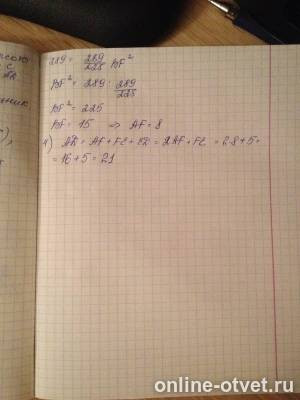 289 = 289/225 BF²
BF² = 289 : 289/225
BF² = 225
BF = 15 ⇒ AF = 8
4) AD = AF + FE + ED = 2AF + FE = 2·8+5=
= 16 + 5 = 21
online-otvet.ru